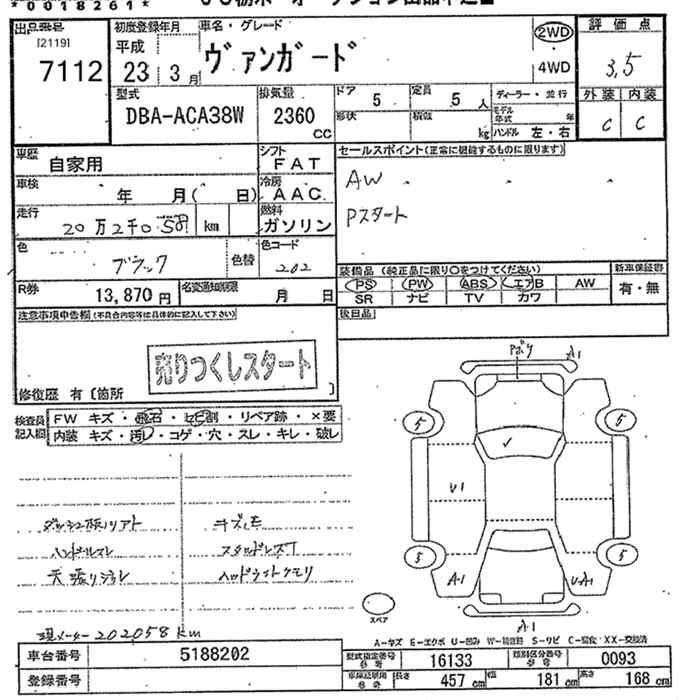 *0018261*
出品番号
[2119]
7112
初度登録年月
平成
23 3月
車名・グレード
ヴァンガード
2WD
4WD
評価点
3,5
型式
DBA-ACA38W
排気量
2360
CC
ドア
5
定員
5 人
形状
積載
kg
ディーラー・並行
モデル年式 年
ハンドル 左・右
外装 内装
C C
車歴
自家用
シフト
FAT
車検
年 月( 日)
冷房
AAC
走行
20万2千058 km
燃料
ガソリン
色
ブラック
色替
色コード
202
R券
13,870円
名変通知期限
月 日
セールスポイント(正常に機能するものに限ります)
AW
Pスタート
装備品(純正品に限り○をつけてください)
PS PW ABS エアB AW
SR ナビ TV カワ
新車保証書
有・無
後日品
注意事項申告欄(不具合内容等は具体的に記入して下さい)
売りつくしスタート
修復歴 有〔箇所 〕
検査員記入欄
FW キズ・飛石・ヒビ割・リペア跡・×要
内装 キズ・汚レ・コゲ・穴・スレ・キレ・破レ
キズ凹
ハンドルスレ
スタッドレスT
ヘッドライトクモリ
現メーター202058km
A1
5
5
U1
5
5
A1
UA1
スペア
A1
A-キズ E-エクボ U-凹み W-補修跡 S-サビ C-腐食 XX-交換済
車台番号
5188202
登録番号
型式指定番号
参考
16133
類別区分番号
参考
0093
車庫証明用
参考
長さ
457 cm
幅
181 cm
高さ
168 cm